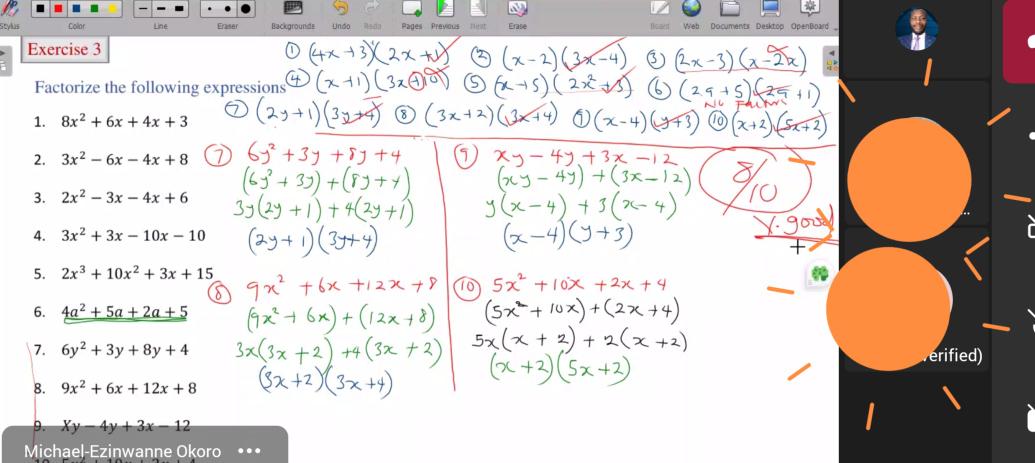 Stylus Color Line Eraser Backgrounds Undo Redo Pages Previous Next Erase Board Web Documents Desktop OpenBoard
Exercise 3
Factorize the following expressions
① (4x+3)(2x+1) ② (x-2)(3x-4) ③ (2x-3)(x-2x)
④ (x+1)(3x+10) ⑤ (x+5)(2x²+3) ⑥ (2a+5)(2a+1)
No Factors
⑦ (2y+1)(3y+4) ⑧ (3x+2)(3x+4) ⑨ (x-4)(y+3) ⑩ (x+2)(5x+2)
1. 8x² + 6x + 4x + 3
2. 3x² − 6x − 4x + 8
3. 2x² − 3x − 4x + 6
4. 3x² + 3x − 10x − 10
5. 2x³ + 10x² + 3x + 15
6. 4a² + 5a + 2a + 5
7. 6y² + 3y + 8y + 4
8. 9x² + 6x + 12x + 8
9. Xy − 4y + 3x − 12
⑦ 6y² + 3y + 8y + 4
(6y² + 3y) + (8y + 4)
3y(2y + 1) + 4(2y + 1)
(2y+1)(3y+4)
⑧ 9x² + 6x + 12x + 8
(9x² + 6x) + (12x + 8)
3x(3x + 2) + 4(3x + 2)
(3x+2)(3x+4)
⑨ xy - 4y + 3x - 12
(xy - 4y) + (3x - 12)
y(x - 4) + 3(x - 4)
(x - 4)(y + 3)
⑩ 5x² + 10x + 2x + 4
(5x² + 10x) + (2x + 4)
5x(x + 2) + 2(x + 2)
(x + 2)(5x + 2)
8/10
v. good
erified)
Michael-Ezinwanne Okoro